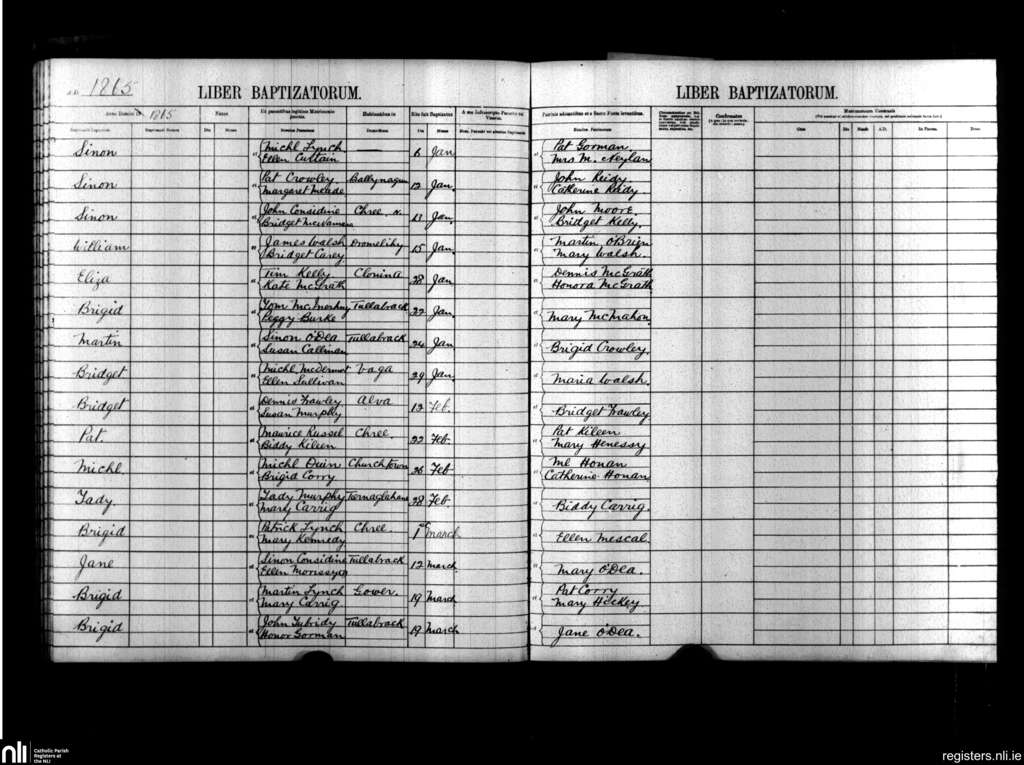 A.D. 1865
LIBER BAPTIZATORUM.
Anno Domini 1865
Natus
Ex parentibus legitimo Matrimonio junctis.
Habitantibus in
Rite fuit Baptizatus
Die Mense
Nomina Parentum
Die Mense
Sinon Michl Lynch 6 Jan
Ellen Cultain
Sinon Pat Crowley Ballynagun 12 Jan.
Margaret Meade
Sinon John Considine Chree. N. 11 Jan.
Bridget McNamara
William James Walsh Dromelihy 15 Jan.
Bridget Carey
Eliza Tim Kelly Clonina 28 Jan
Kate McGrath
Brigid Tom McInerhny Tullabrack 22 Jan.
Peggy Burke
Martin Sinon O'Dea Tullabrack 24 Jan
Susan Callinan
Bridget Michl McDermot Vaga 29 Jan.
Ellen Sullivan
Bridget Dennis Frawley Alva 13 Feb.
Susan Murphy
Pat. Maurice Russel Chree. 22 Feb.
Biddy Kileen
Michl. Michl Quin Churchtown 26 Feb
Brigid Corry
Tady. Tady Murphy 28 Feb.
Mary Carrig
Brigid Patrick Lynch Chree. 1st March
Mary Kennedy
Jane Sinon Considine Tullabrack 12 March
Ellen
Brigid Martin Lynch Gower. 19 March
Mary Carrig
Brigid John Tubridy Tullabrack 19 March
Honor Gorman
LIBER BAPTIZATORUM.
Nomina Patrinorum
Confirmatus
Matrimonium Contraxit
Die Mense A.D.
Pat Gorman
Mrs M. Neylan
John Reidy.
Catherine Reidy.
John Moore.
Bridget Kelly.
Martin O'Brien
Mary Walsh.
Dennis McGrath
Honora McGrath
Mary McMahon.
Brigid Crowley.
Maria Walsh.
Bridget Frawley
Pat Kileen
Mary Henessy
Ml Honan
Catherine Honan
Biddy Carrig.
Ellen Mescal.
Mary O'Dea.
Pat Corry
Mary Hickey
Jane O'Dea.
nli
Catholic Parish
Registers at
the NLI
registers.nli.ie